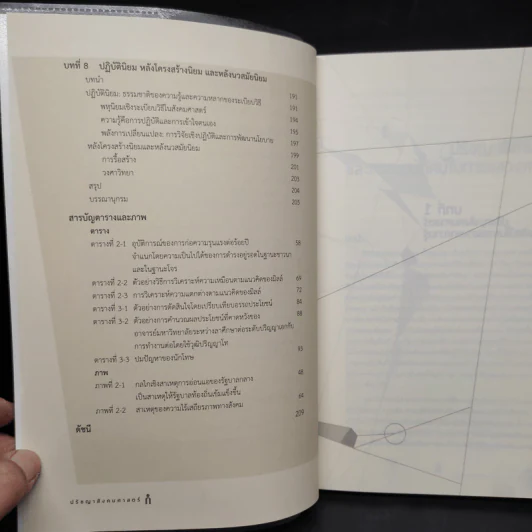 บทที่ 8 ปฏิบัตินิยม หลังโครงสร้างนิยม และหลังนวสมัยนิยม
บทนำ 191
ปฏิบัตินิยม: ธรรมชาติของความรู้และความหลากของระเบียบวิธี 191
พหุนิยมเชิงระเบียบวิธีในสังคมศาสตร์ 194
ความรู้คือการปฏิบัติและการเข้าใจตนเอง 195
พลังการเปลี่ยนแปลง: การวิจัยเชิงปฏิบัติและการพัฒนานโยบาย 197
หลังโครงสร้างนิยมและหลังนวสมัยนิยม 199
การรื้อสร้าง 201
วงศาวิทยา 203
สรุป 204
บรรณานุกรม 205
สารบัญตารางและภาพ
ตาราง
ตารางที่ 2-1 อุบัติการณ์ของการก่อความรุนแรงต่อร้อยปี 56
จำแนกโดยความเป็นไปได้ของการดำรงอยู่รอดในฐานะชาวนา
และในฐานะโจร
ตารางที่ 2-2 ตัวอย่างวิธีการวิเคราะห์ความเหมือนตามแนวคิดของมิลล์ 69
ตารางที่ 2-3 การวิเคราะห์ความแตกต่างตามแนวคิดของมิลล์ 72
ตารางที่ 3-1 ตัวอย่างการตัดสินใจโดยเปรียบเทียบอรรถประโยชน์ 84
ตารางที่ 3-2 ตัวอย่างการคำนวณผลประโยชน์ที่คาดหวังของ 88
อาจารย์มหาวิทยาลัยระหว่างลาศึกษาต่อระดับปริญญาเอกกับ
การทำงานต่อโดยใช้วุฒิปริญญาโท
ตารางที่ 3-3 ปมปัญหาของนักโทษ 93
ภาพ
ภาพที่ 2-1 กลไกเชิงสาเหตุการอ่อนแอของรัฐบาลกลาง 48
เป็นสาเหตุให้รัฐบาลท้องถิ่นเข้มแข็งขึ้น
ภาพที่ 2-2 สาเหตุของความไร้เสถียรภาพทางสังคม 64
ดัชนี 209
ปรัชญาสังคมศาสตร์
บทที่ 1